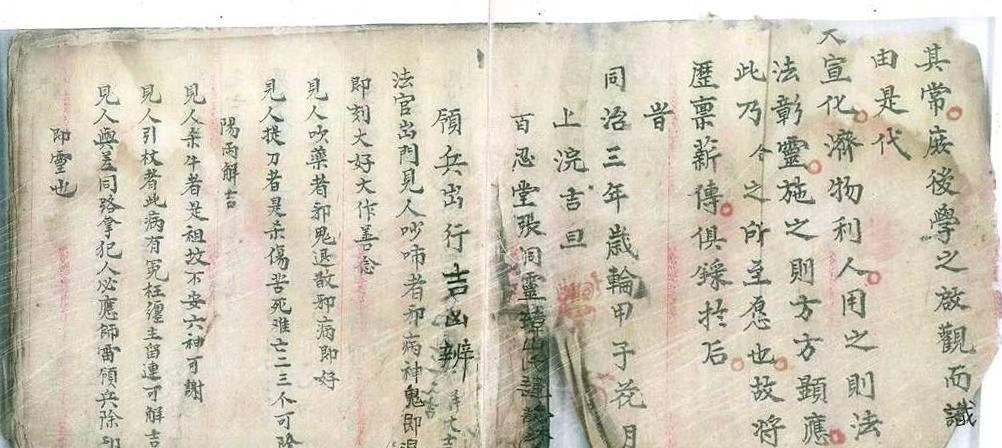 其常庶後學之啟觀而識
由是代
天宣化濟物利人用之則法
法彰靈施之則方方顯應
此乃今之所至愿也故将
歷稟薪傳俱錄扵后
旹
同治三年歲輪甲子花月
上浣吉旦
百忍堂張洞靈
領兵出行吉凶辨
法官出門見人吵鬧者邪病神鬼即退
即刻大好大作善念
見人吹藥者邪鬼退散邪病即好
見人提刀者是杀傷苦死难亡二三个可除
陽雨解吉
見人杀牛者是祖坟不安六神可謝
見人引杖者此病有冤枉纏主留連可解吉
見人與差同路拿犯人必應師雷領兵除邪
即灵也